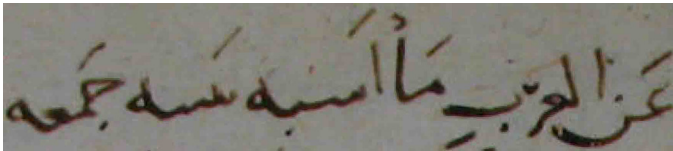 عَن العرَبِ مَا اَسبه نَسه جَمعه